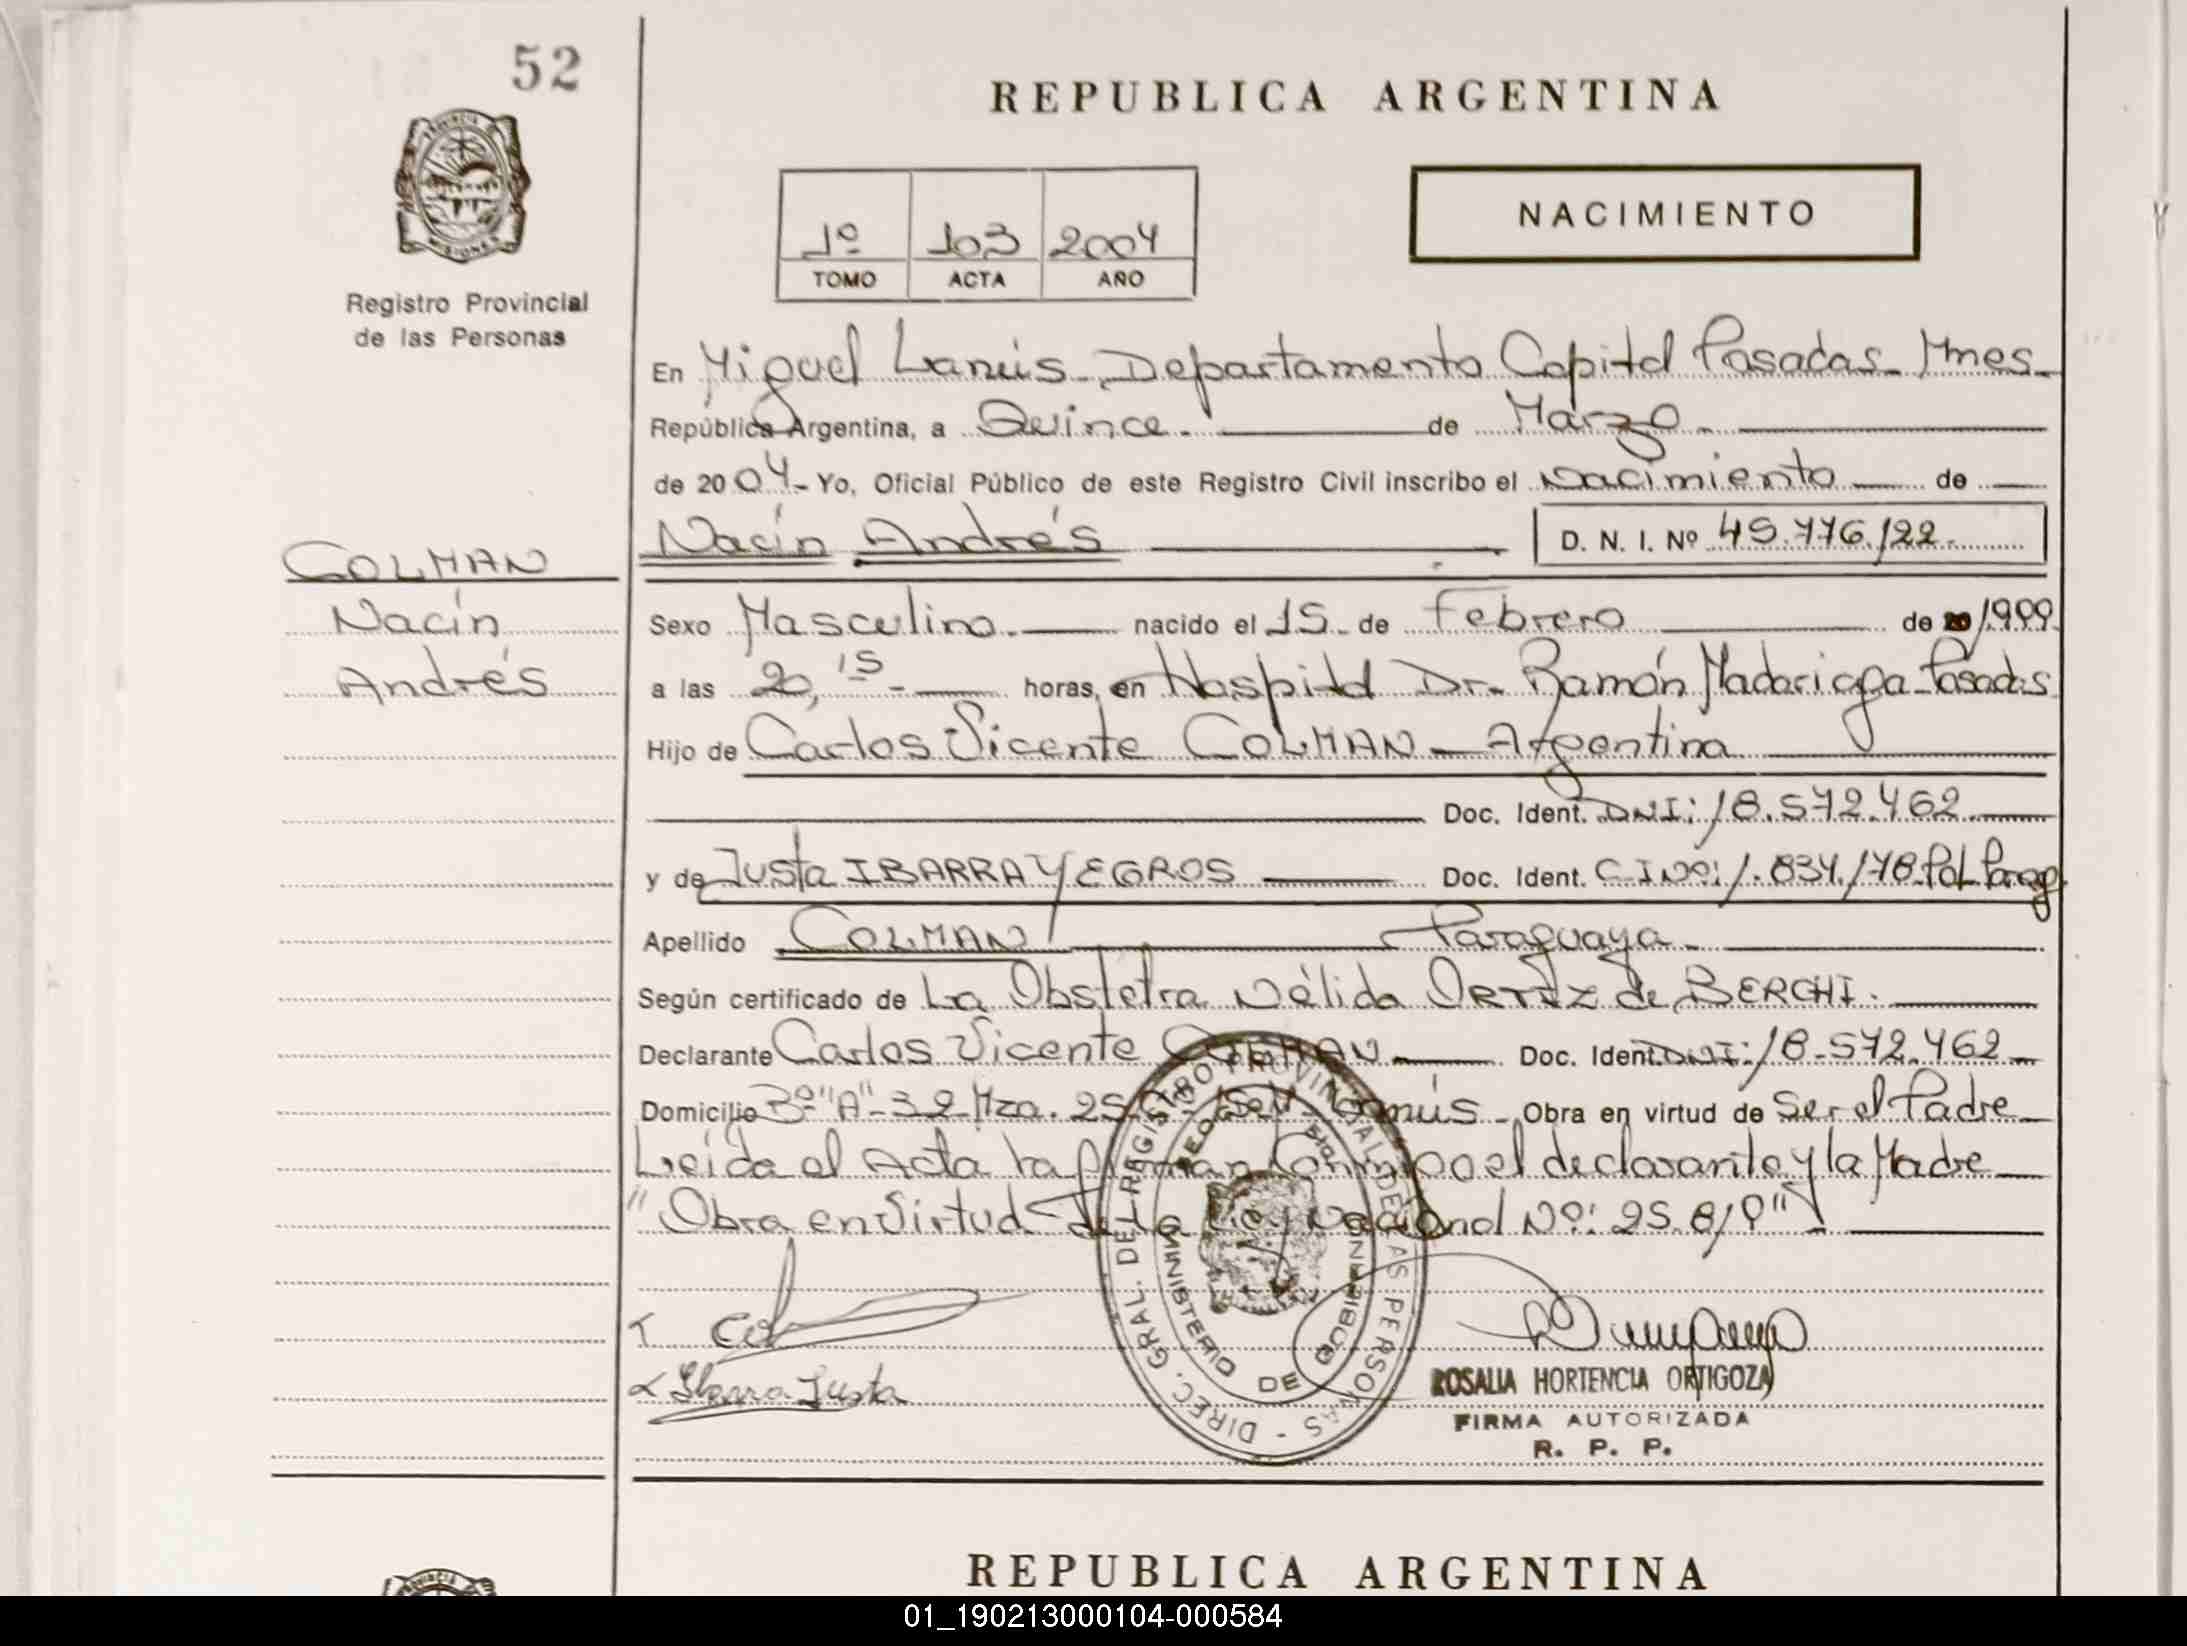 52
REPUBLICA ARGENTINA
PROVINCIA
MISIONES
Registro Provincial
de las Personas
1º 103 2004
TOMO ACTA AÑO
NACIMIENTO
En Miguel Lanús - Departamento Capital Posadas - Mnes -
República Argentina, a Quince. de Marzo -
de 2004 - Yo, Oficial Público de este Registro Civil inscribo el Nacimiento de
Nacín Andrés D. N. I. Nº 45.776.122.
COLMAN
Nacín
Andrés
Sexo Masculino. nacido el 15 - de Febrero de 20 1.999.
a las 20,15 - horas, en Hospital Dr. Ramón Madariaga - Posadas
Hijo de Carlos Vicente COLMAN - Argentina
Doc. Ident. DNI: 18.572.462
y de Justa IBARRA YEGROS Doc. Ident. C I Nº: 1.834.178 Pol. Parag.
Apellido COLMAN Paraguaya -
Según certificado de La Obstetra Nélida ORTIZ de BERCHI.
Declarante Carlos Vicente COLMAN Doc. Ident. DNI: 18.572.462
Domicilio Bº "A" - 32 Mza. 25 Lanús - Obra en virtud de Ser el Padre
Leída el Acta la firman conmigo el declarante y la Madre
"Obra en Virtud de la Ley Nacional Nº: 25.819"
DIREC. GRAL. DEL REGISTRO PROVINCIAL DE LAS PERSONAS -
MINISTERIO DE GOBIERNO
Ibarra Justa
ROSALIA HORTENCIA ORTIGOZA
FIRMA AUTORIZADA
R. P. P.
REPUBLICA ARGENTINA
01_190213000104-000584